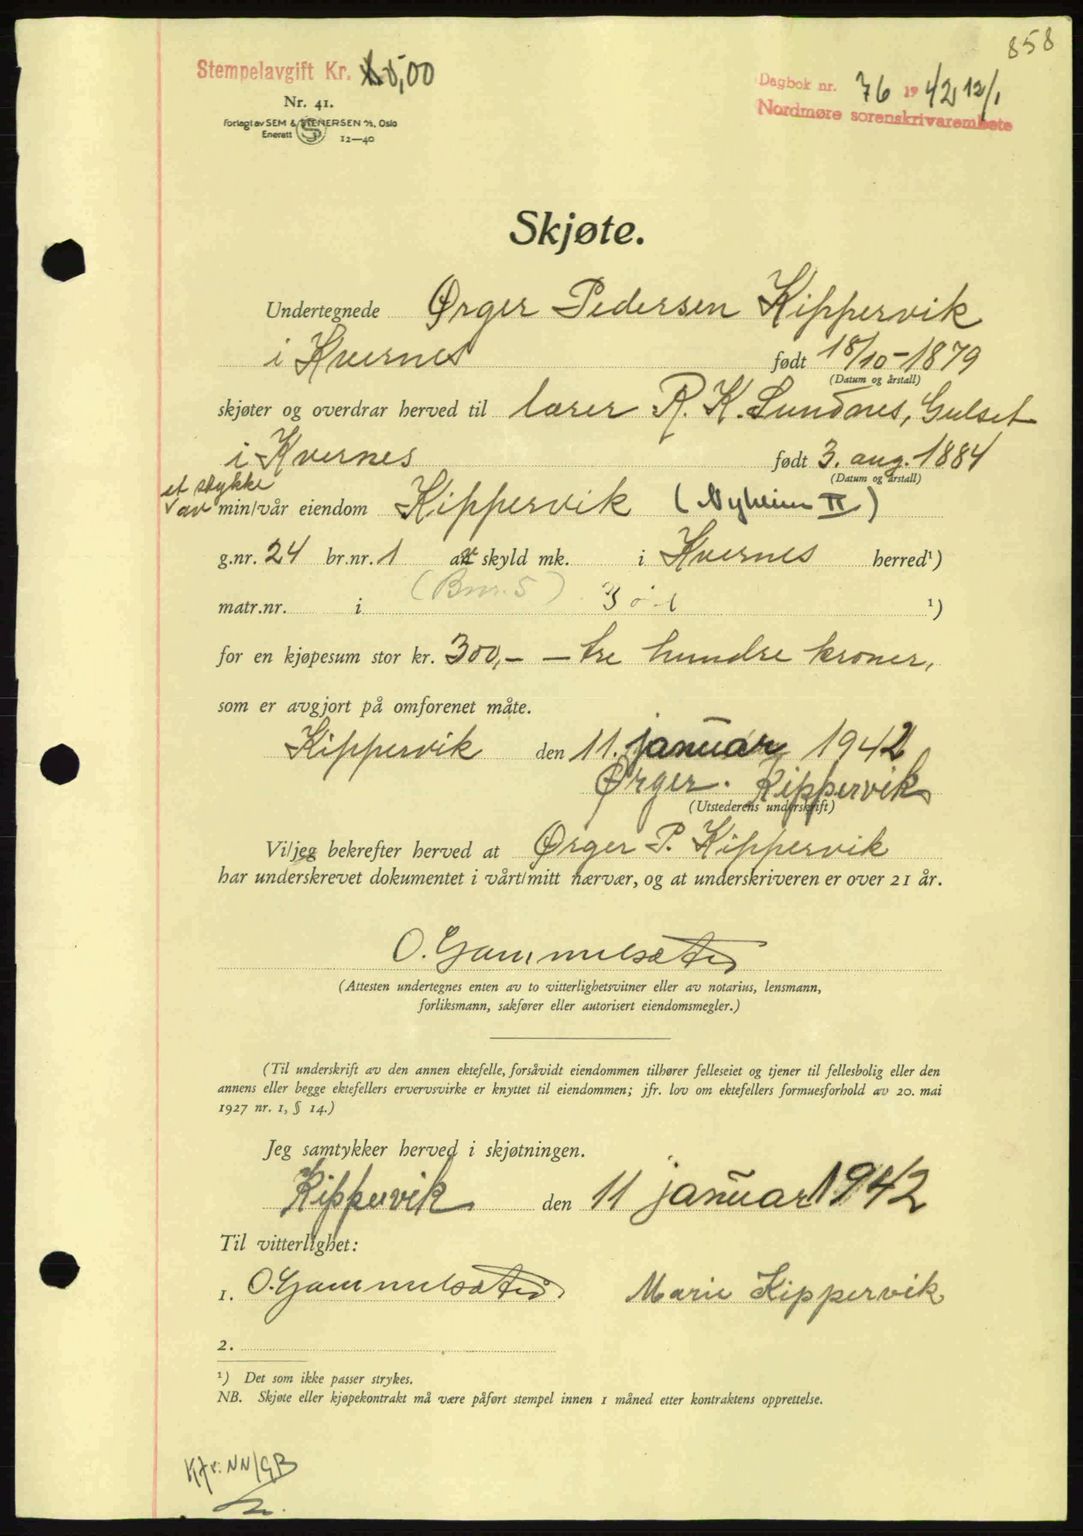 858
Stempelavgift Kr. 5,00
Dagbok nr. 76 1942 12/1
Nordmøre sorenskrivarembete
Nr. 41.
Forlagt av SEM & STENERSEN A/S, Oslo
Enerett 12—40
Skjøte.
Undertegnede Ørger Pedersen Kippervik
i Kvernes født 18/10-1879
(Datum og årstall)
skjøter og overdrar herved til lærer R. K. Sundnes, Gulset
i Kvernes født 3. aug. 1884
(Datum og årstall)
et stykke
av min/vår eiendom Kippervik (Nyheim II)
g.nr. 24 br.nr. 1 av skyld mk. i Kvernes herred¹)
(Brnr. 5)
matr.nr. i ¹)
for en kjøpesum stor kr. 300,- — tre hundre kroner,
som er avgjort på omforenet måte.
Kippervik den 11. januar 1942
Ørger. Kippervik
(Utstederens underskrift)
Vi/jeg bekrefter herved at Ørger P. Kippervik
har underskrevet dokumentet i vårt/mitt nærvær, og at underskriveren er over 21 år.
O. Gammelsæter
(Attesten undertegnes enten av to vitterlighetsvitner eller av notarius, lensmann,
forliksmann, sakfører eller autorisert eiendomsmegler.)
(Til underskrift av den annen ektefelle, forsåvidt eiendommen tilhører felleseiet og tjener til fellesbolig eller den
annens eller begge ektefellers ervervsvirke er knyttet til eiendommen; jfr. lov om ektefellers formuesforhold av 20. mai
1927 nr. 1, § 14.)
Jeg samtykker herved i skjøtningen.
Kippervik den 11 januar 1942
Til vitterlighet:
1. O. Gammelsæter Marie Kippervik
2.
¹) Det som ikke passer strykes.
NB. Skjøte eller kjøpekontrakt må være påført stempel innen 1 måned etter kontraktens opprettelse.
Kfr: NN/GB